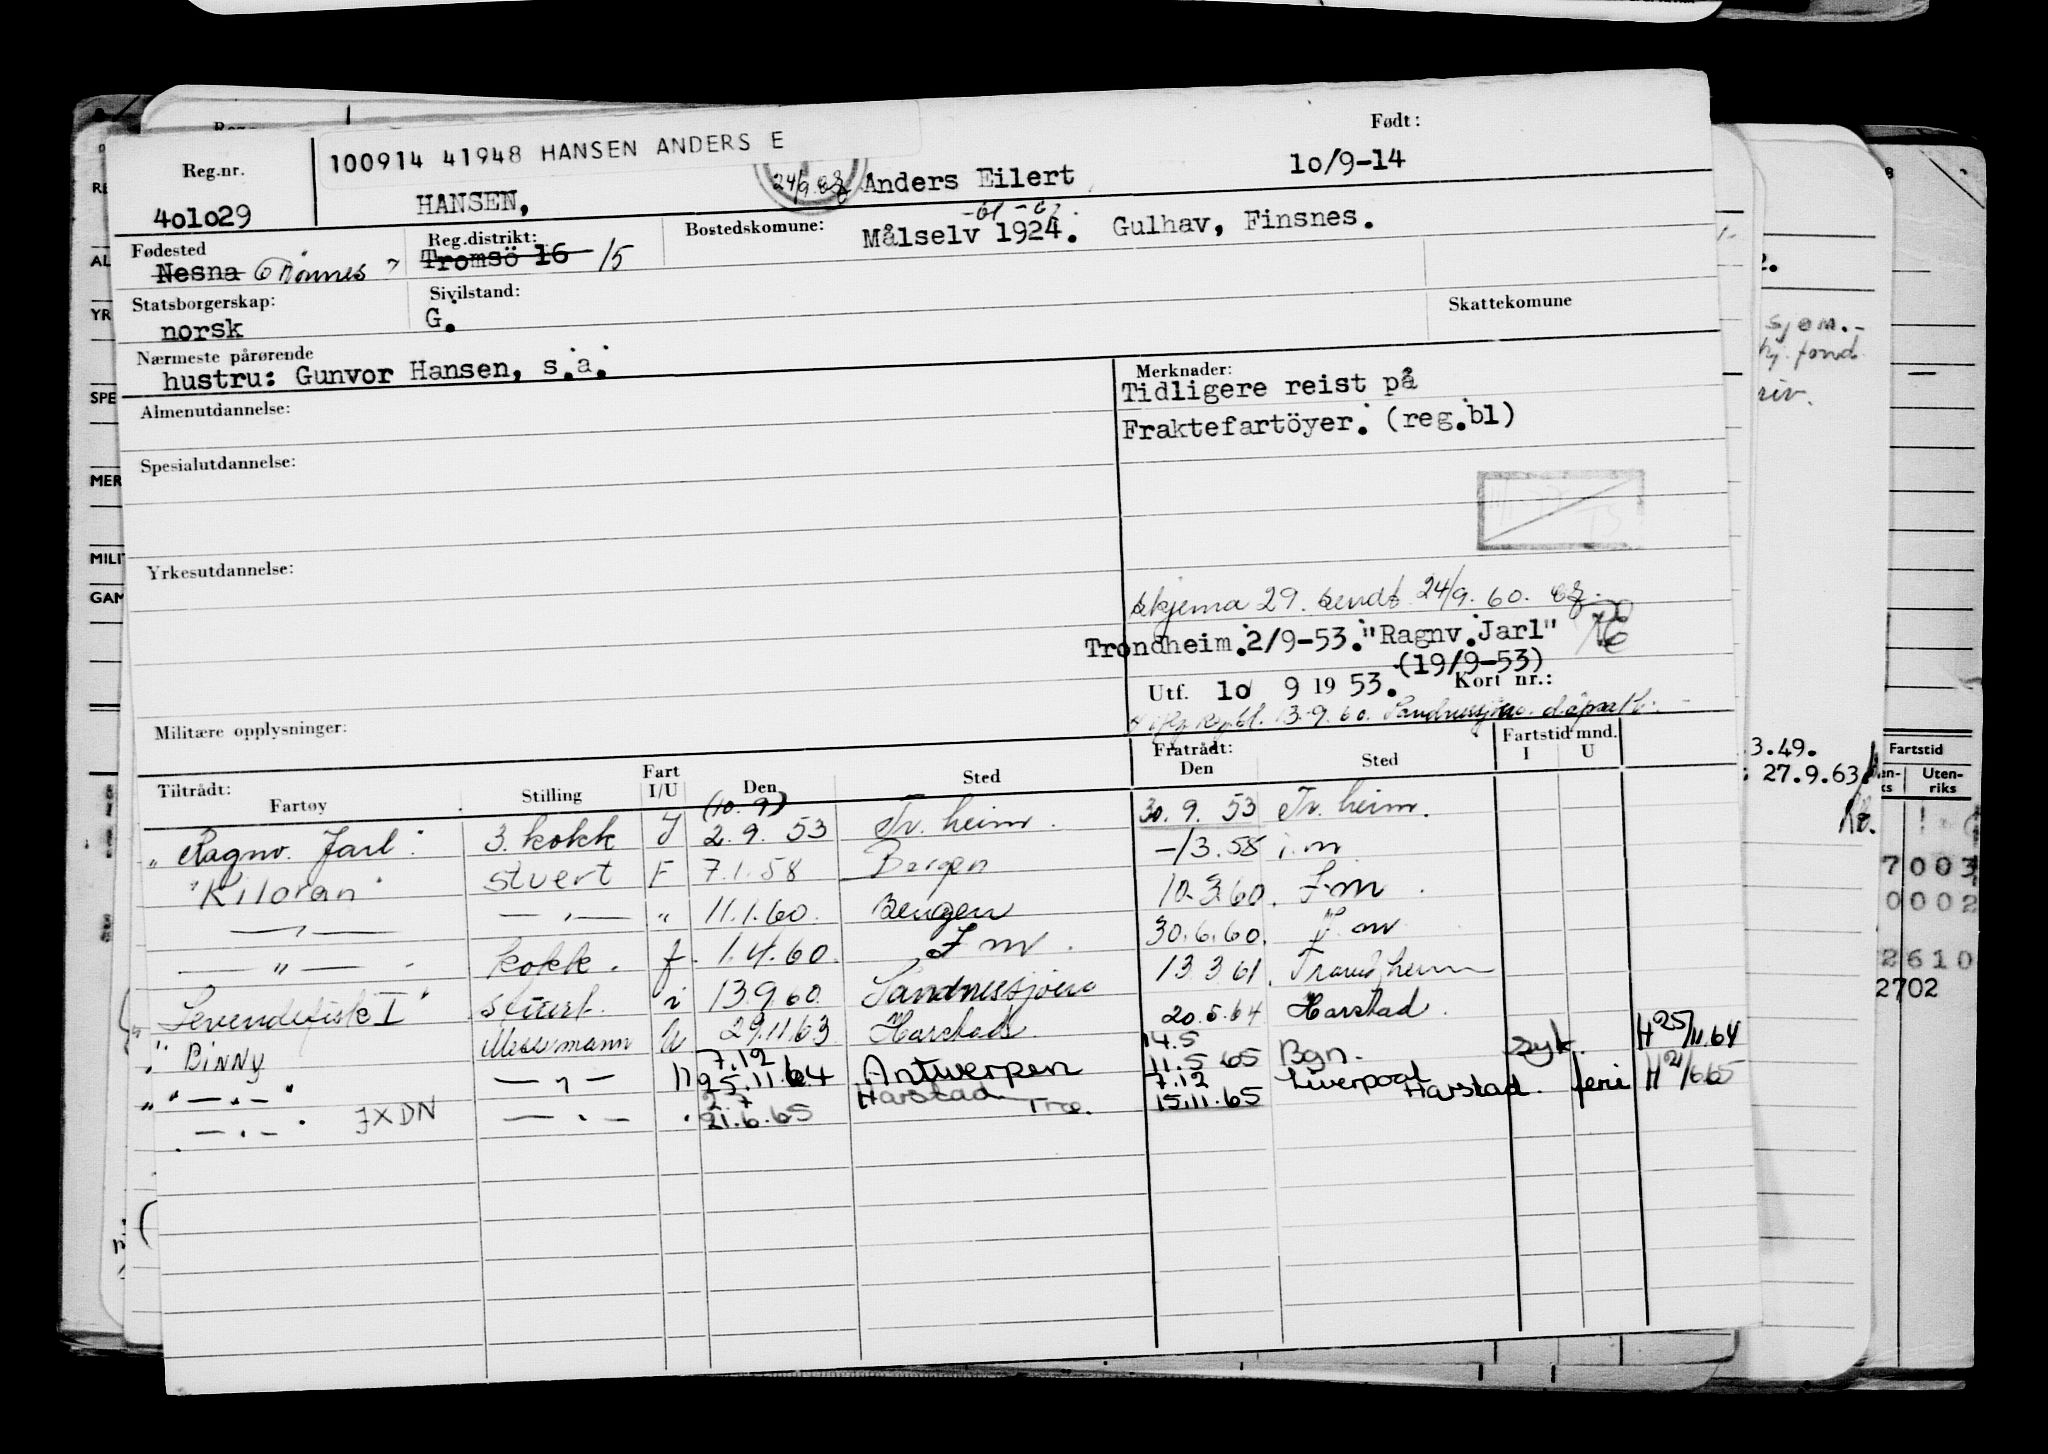 100914 41948 HANSEN ANDERS E
Født:
Reg.nr.
4o1o29
HANSEN,
24/9.63
Anders Eilert
1o/9-14
Fødested
Nesna Dönnes
Reg.distrikt:
Tromsö 16 15
Bostedskomune:
-61 -62.
Målselv 1924. Gulhav, Finsnes.
Statsborgerskap:
norsk
Sivilstand:
G.
Skattekomune
Nærmeste pårørende
hustru: Gunvor Hansen, s.a.
Merknader:
Tidligere reist på
Fraktefartöyer. (reg.bl)
Almenutdannelse:
Spesialutdannelse:
Yrkesutdannelse:
skjema 29. sendt 24/9. 60.
Trondheim 2/9-53. "Ragnv.Jarl"
(19/9-53)
Utf. 1o 9 19 53. Kort nr.:
Reg.bl. 13.9.60. Sandnessjøen
Militære opplysninger:
Tiltrådt: Fratrådt: Fartstid mnd.
Fartøy Stilling Fart I/U Den Sted Den Sted I U
(10.9)
"Ragnv. Jarl" 3. kokk I 2.9.53 Tr.heim. 30.9.53 Tr.heim.
"Kiloran" stuert F 7.1.58 Bergen -/3.58 i.m
— " — — " — " 11.1.60. Bergen 10.3.60. I.m.
— " — kokk. f. 1.4.60. I m. 30.6.60. I.m
"Levendefisk I" stuert. i 13.9.60. Sandnessjøen 13.3.61. Trondheim
"Binny Messmann U 29.11.63 Harstad. 20.5.64 Harstad.
" — " — " — " — " 7.12 25.11.64 Antwerpen 14.5 11.5.65 Bgn. syk. H 25/11.64
— " — " JXDN — " — " 2.7 21.6.65 Harstad 7.12 15.11.65 Liverpool Harstad. ferie H 21/6.65
3.49.
27.9.63
Fartstid
Uten-
riks
7003
0002
2610
2702